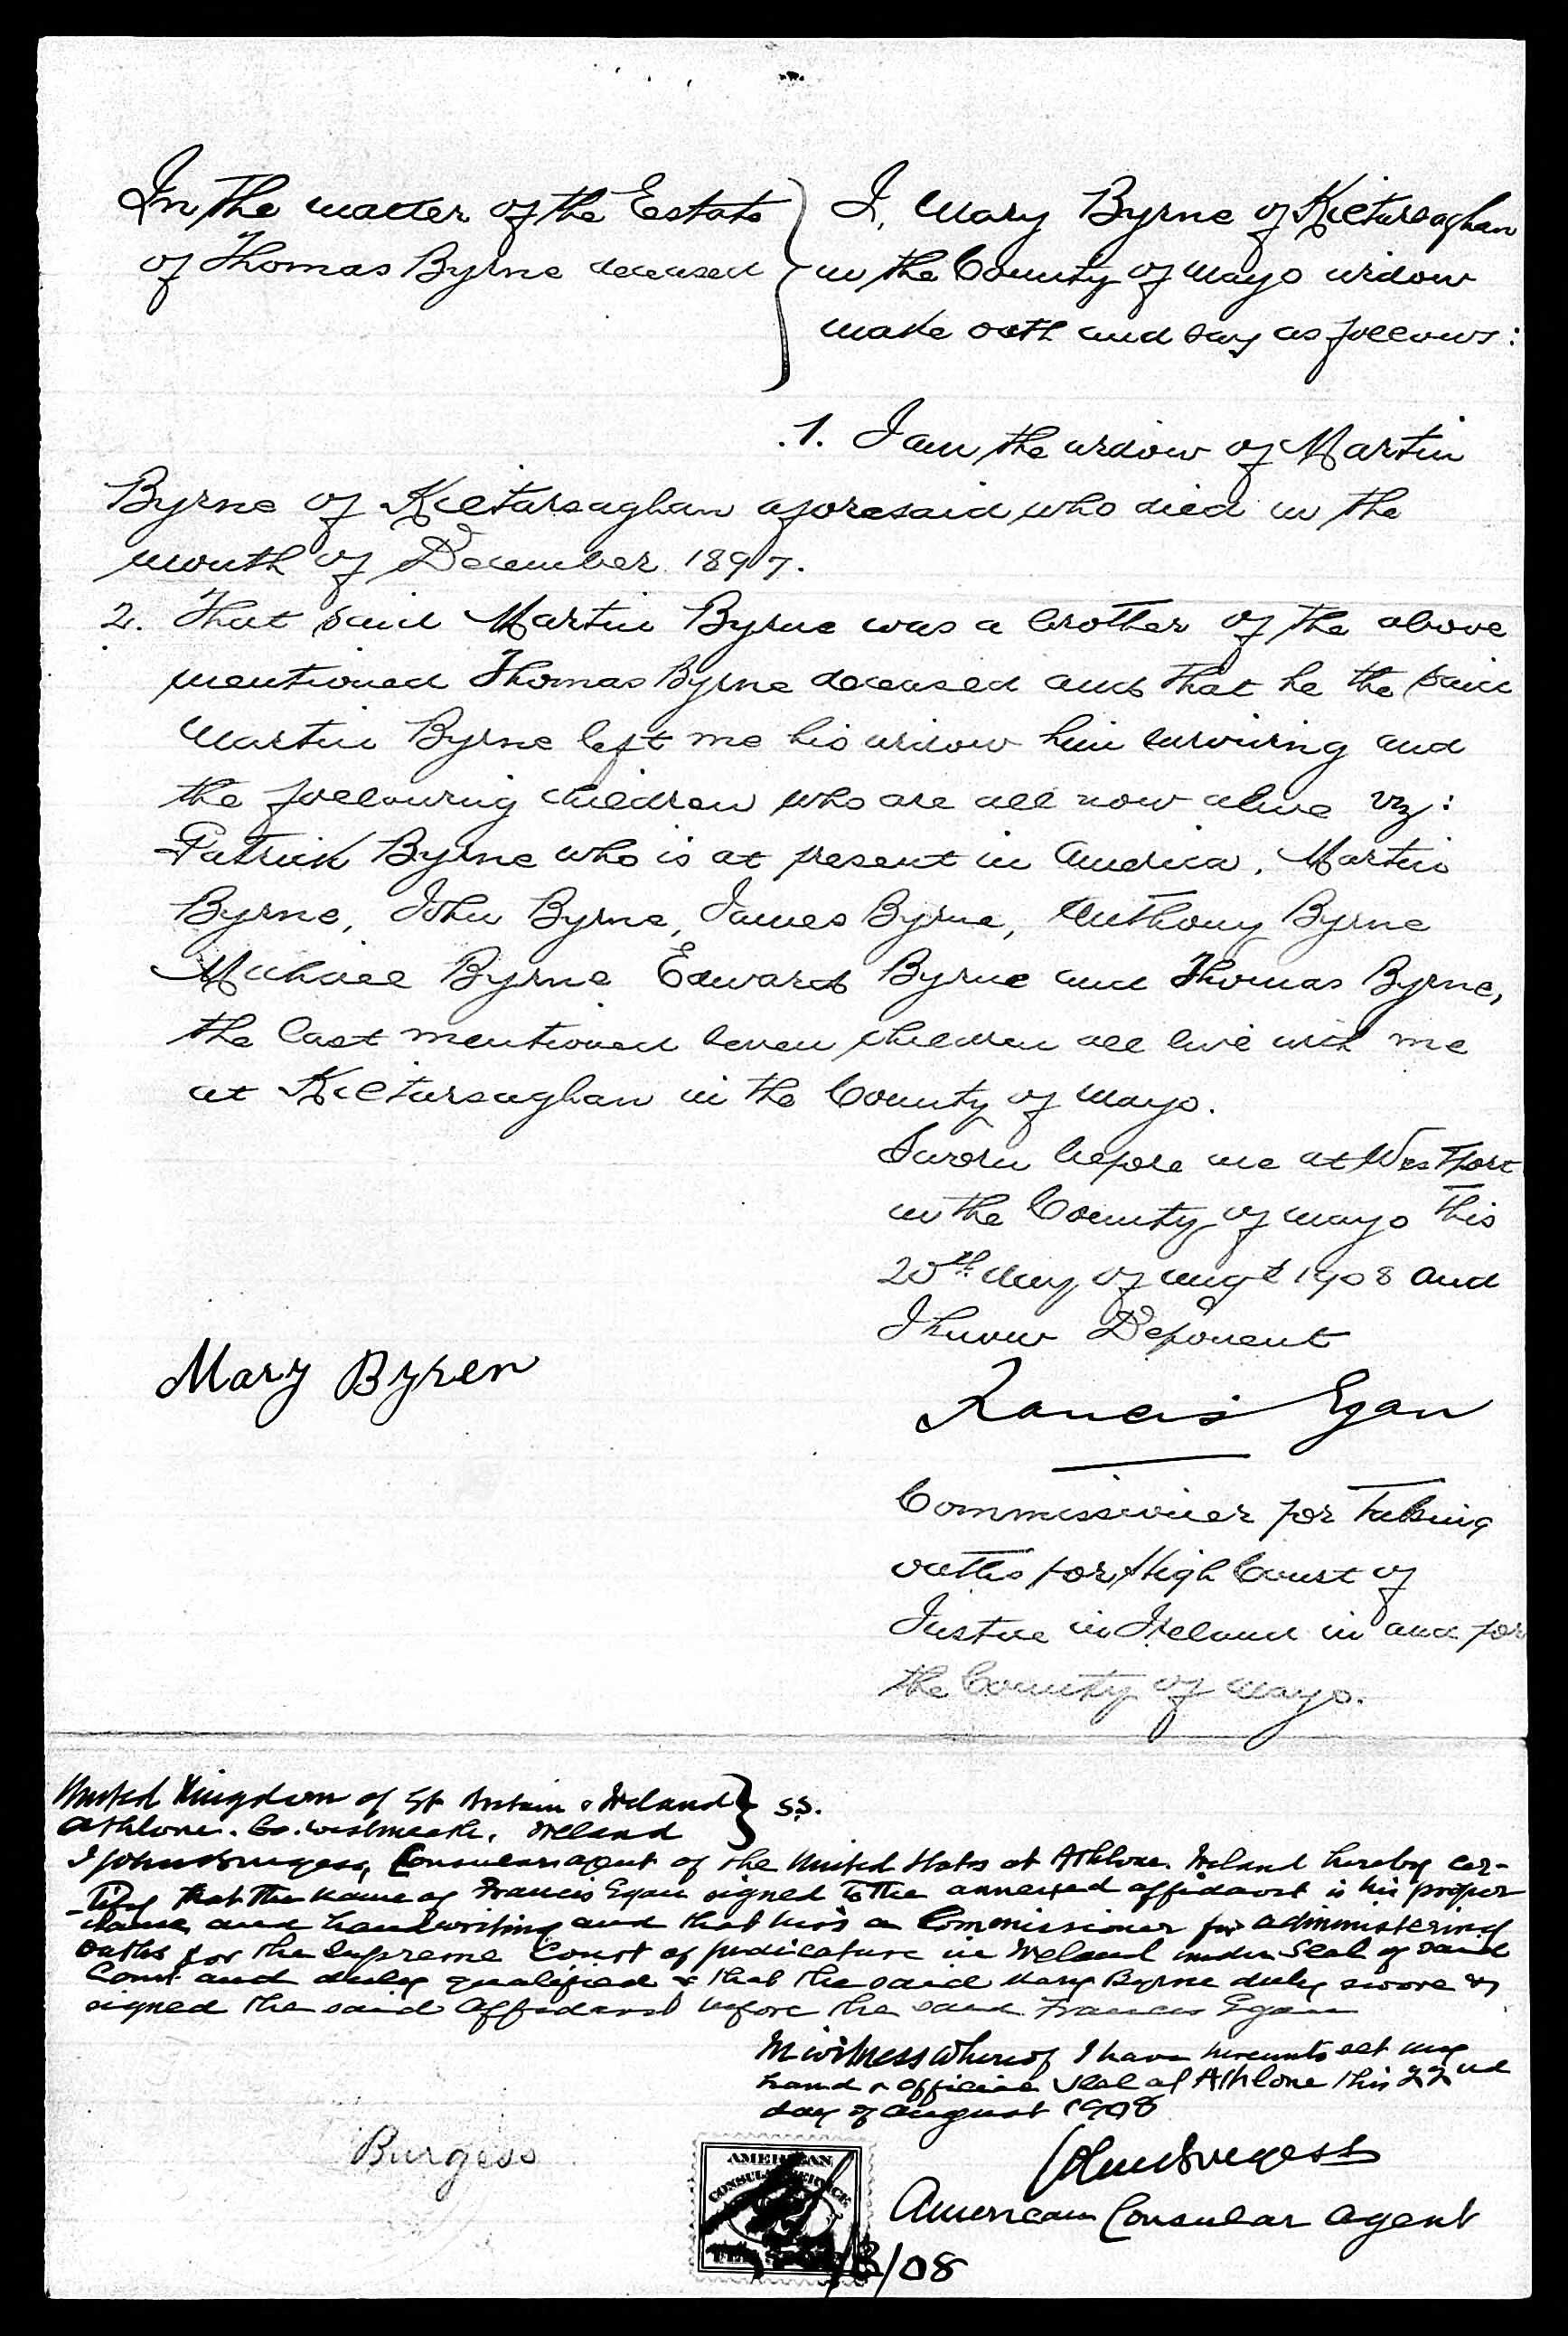 In the matter of the Estate
of Thomas Byrne deceased
I, Mary Byrne of Kiltarsaghan
in the County of Mayo widow
make oath and say as follows:
1. I am the widow of Martin
Byrne of Kiltarsaghan aforesaid who died in the
month of December 1897.
2. That said Martin Byrne was a brother of the above
mentioned Thomas Byrne deceased and that he the said
Martin Byrne left me his widow him surviving and
the following children who are all now alive viz:
Patrick Byrne who is at present in America, Martin
Byrne, John Byrne, James Byrne, Anthony Byrne
Michael Byrne Edward Byrne and Thomas Byrne,
the last mentioned seven children all live with me
at Kiltarsaghan in the County of Mayo.
Sworn before me at Westport
in the County of Mayo this
20th day of Augt 1908 and
I know Deponent
Mary Byren
Francis Egan
Commissioner for taking
oaths for High Court of
Justice in Ireland in and for
the County of Mayo.
United Kingdom of Gt Britain & Ireland } ss.
Athlone. Co. Westmeath. Ireland
I John Burgess, Consular agent of the United States at Athlone. Ireland hereby cer-
-tify that the name of Francis Egan signed to the annexed affidavit is his proper
name and handwriting and that he is a Commissioner for administering
oaths for the Supreme Court of Judicature in Ireland under Seal of said
Court and duly qualified & that the said Mary Byrne duly swore &
signed the said Affidavit before the said Francis Egan
In witness whereof I have hereunto set my
hand & official Seal at Athlone this 22nd
day of August 1908
Burgess
John Burgess
American Consular Agent
AMERICAN
CONSULAR SERVICE
/8/08